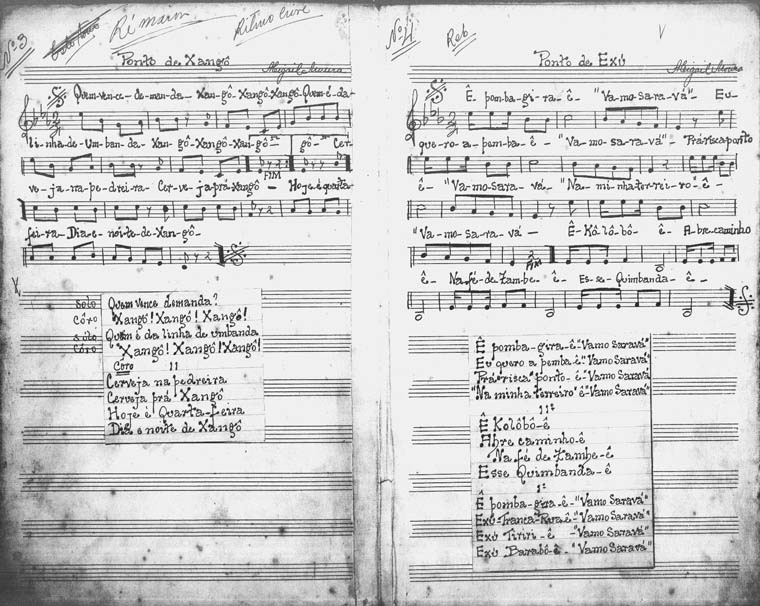 Nº3
Ré maior
Ritmo livre
Ponto de Xangô
Abigail Moura
Quem-ven-ce- de-man-da- Xan-gô-Xangô-Xangô-Quem-é-da-
li-nha-de-Um-ban-da- Xan-gô-Xangô-Xan-gô- gô- Cer-
FIM
ve-ja-na-pe-drei-ra- Cer-ve-ja-prá-Xangô- Ho-je-é-quarta-
fei-ra- Dia-e- noi-te-de-Xan-gô-
Solo Quem vence demanda?
Côro "Xangô! Xangô! Xangô!
Sólo Quem é da linha de umbanda
Côro "Xangô! Xangô! Xangô!
Coro II
Cerveja na pedreira
Cerveja prá Xangô
Hoje é Quarta-feira
Dia e noite de Xangô
Nº4
Reb
V
Ponto de Exú
Abigail Moura
Ê pom-ba-gi-ra-ê- "Va-mo-sa-ra-vá" Eu-
que-ro-a-pem-ba-ê- "Va-mo-sa-ra-vá"- Prá-risca-ponto
ê- "Va-mo-sa-ra-vá- "Na-mi-nha-ter-rei-ro-ê-
"Va-mo-sa-ra-vá- Ê-Kô-lô-bô- ê- A-bre-caminho
FIM
ê- Na-fé-de-Zam-be- ê- Es-se-Quimbanda-ê-
Ê pomba-gira-ê-"Vamo Saravá"
Eu quero a pemba-ê-"Vamo Saravá"
Prá "risca" ponto-ê-"Vamo Saravá"
"Na minha terreiro" ê-"Vamo Saravá"
IIª
Ê Kolôbô-ê
Abre caminho-ê
Na fé de Zambe-ê
Esse Quimbanda-ê
1ª
Ê pomba-gira-ê-"Vamo Saravá"
Exú-Tranca-Rua-ê-"Vamo Saravá"
Exú Tiriri-ê -"Vamo Saravá"
Exú Barabô-ê-"Vamo Saravá"